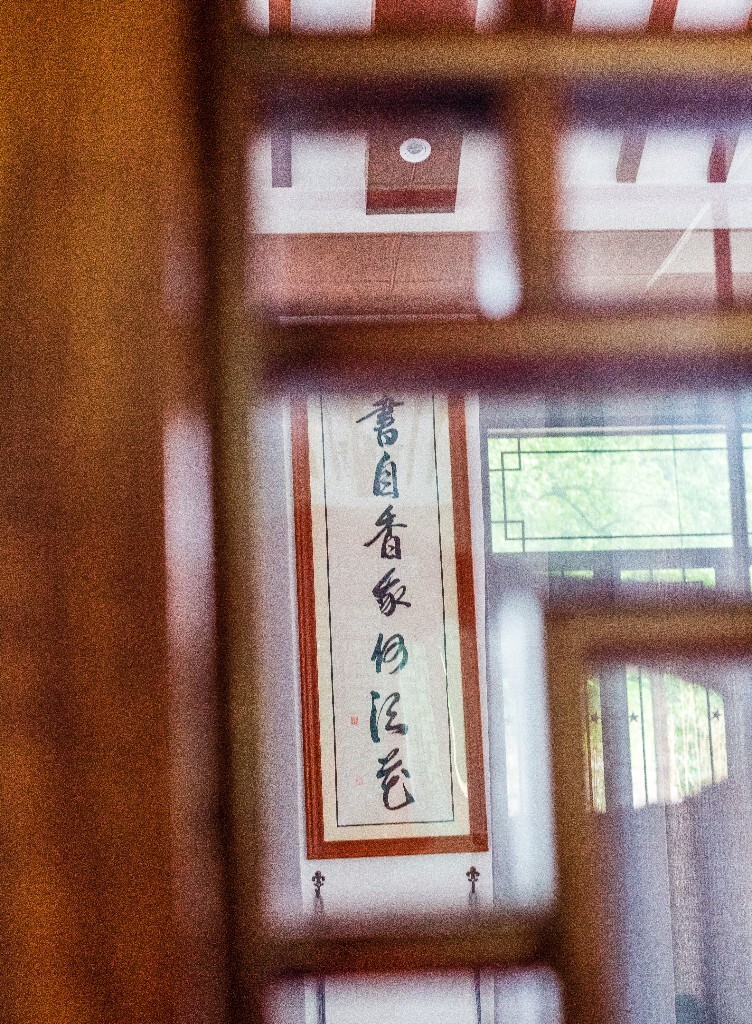 書自香我何須花